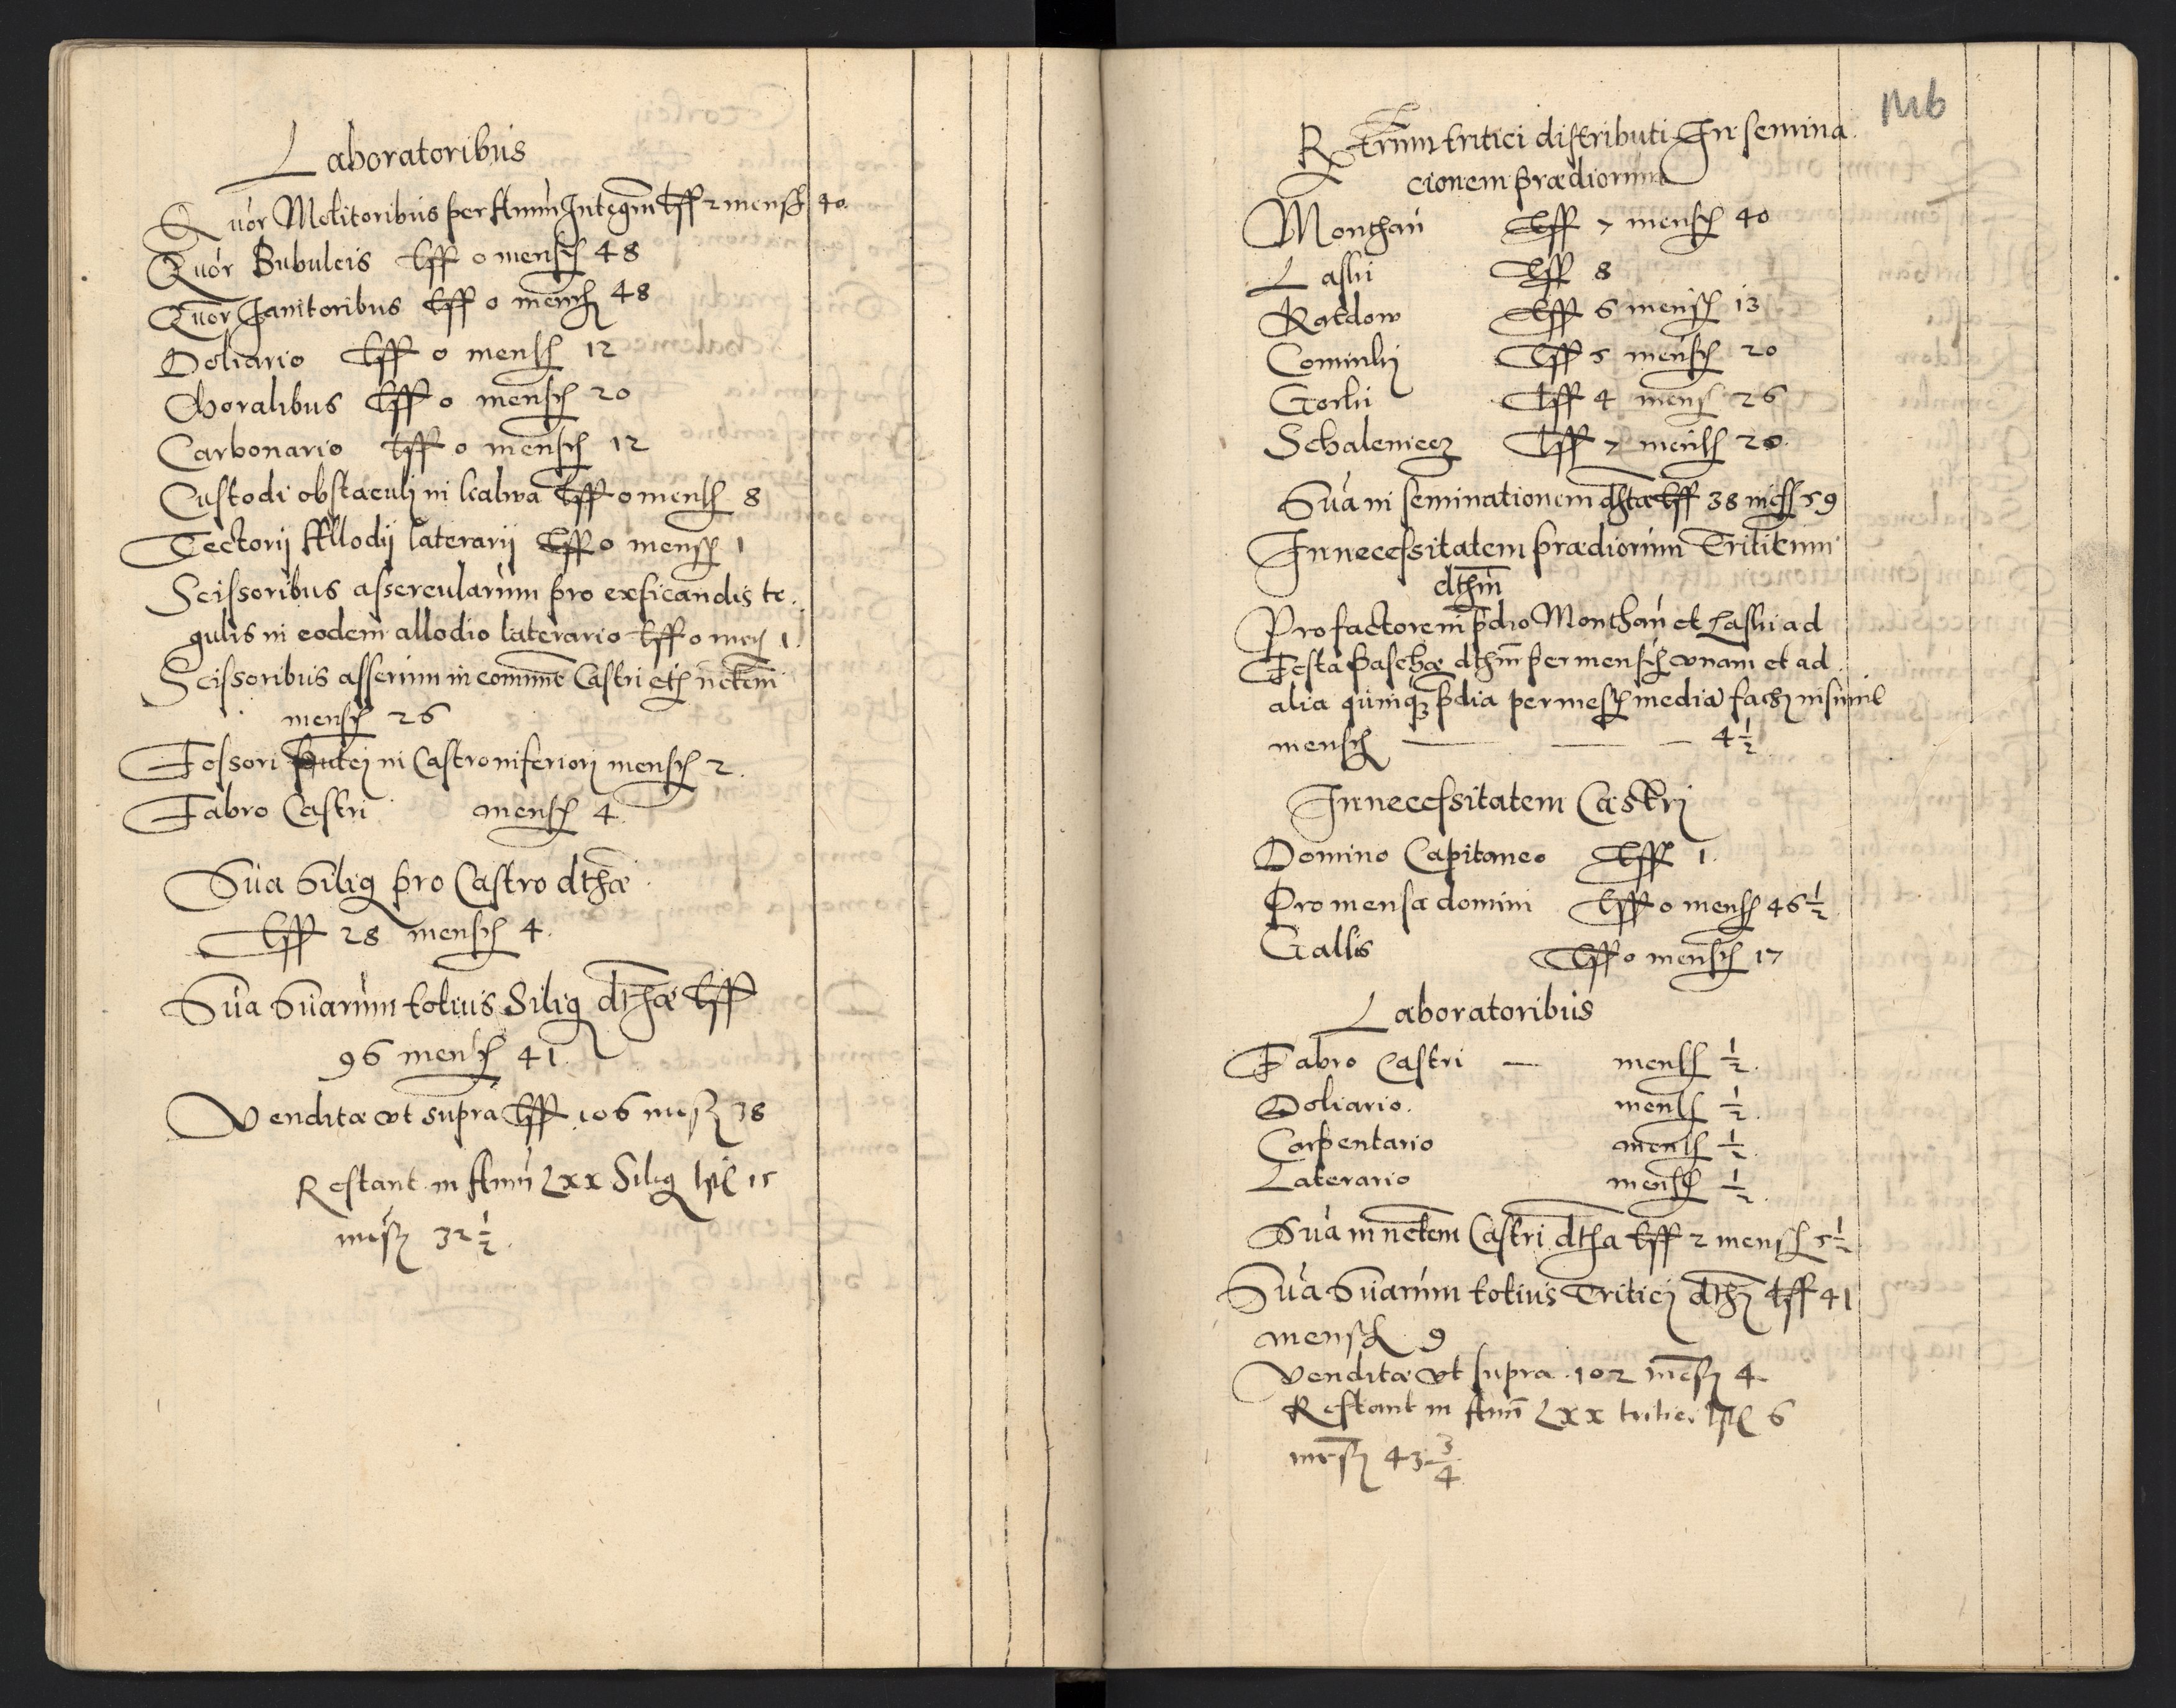 Laboratoribus
Quor Molitoribus per Annu Integrm Lff 2 mensß 40
Quor Bubulcis Lff 0 mensß 48
Quor Janitoribus Lff 0 mensß 48
Doliario Lff 0 mensß 12
Choralibus Lff 0 mensß 20
Carbonario Lff 0 mensß 12
Custodi obstaculi in Lff 0 mensß 8
Tectorij Allodij laterarij Lff 0 mensß 1
Scissoribus assercularum pro exsicandis te
gulis in eodem allodio laterario Lff 0 mensß 1
Scissoribus asserum in comune Castri netem
mensß 26
Fossori putej in Castro inferiorj mensß 2
Fabro Castri mensß 4
Sua Silig pro Castro dtha
Lff 28 mensß 4
Sua Suarum totius Silig dtha Lff
96 mensß 41
Vendita vt supra Lff 106 mesß 38
Restant in Annu Lxx Silig 15
mesß 32 1/2
116
Rtrum tritici distributi In semina
cionem prædiorum
Monthau Lff 7 mensß 40
Lassii Lff 8
Katdow Lff 6 mensß 13
Lff 5 mensß 20
Lff 4 mens 26
Schalemcez Lff 7 mensß 20
Sua in seminationem dhta Lff 38 mesß 59
In necessitatem prædiorum Triticum
dthm
Pro factore in pdio Monthau et Lassii ad
Festa Paschæ dthm per mensß vnam et ad
alia quinqz pdia per mesß media fach insimul
mensß — — — 4 1/2
In necessitatem Castrj
Domino Capitaneo Lff 1
Pro mensa domini Lff 0 mensß 46 1/2
Gallis Lff 0 mensß 17
Laboratoribus
Fabro Castri — mensß 1/2
Doliario mensß 1/2
Carpentario mensß 1/2
Laterario mensß 1/2
Sua in netem Castri dtha Lff 2 mensß 5 1/2
Sua Suarum totius Triticj dth Lff 41
mensß 9
Vendita vt supra 102 mesß 4
Restant in Annu Lxx tritici 6
mesß 43 3/4